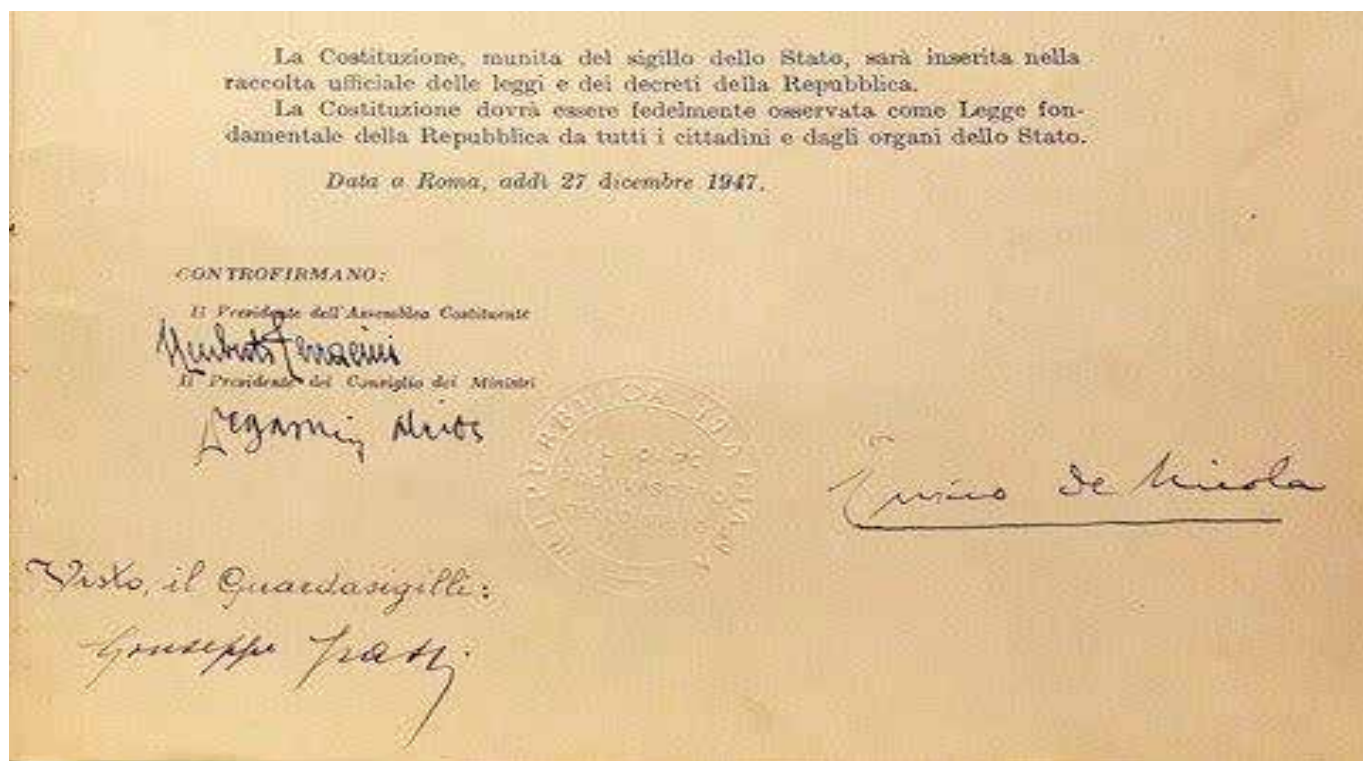 La Costituzione, munita del sigillo dello Stato, sarà inserita nella
raccolta ufficiale delle leggi e dei decreti della Repubblica.
La Costituzione dovrà essere fedelmente osservata come Legge fon-
damentale della Repubblica da tutti i cittadini e dagli organi dello Stato.
Data a Roma, addì 27 dicembre 1947.
CONTROFIRMANO:
Il Presidente dell'Assemblea Costituente
Umberto Terracini
Il Presidente del Consiglio dei Ministri
Degasperi Alcide
REPUBBLICA ITALIANA
Enrico De Nicola
Visto, il Guardasigilli:
Giuseppe Grassi